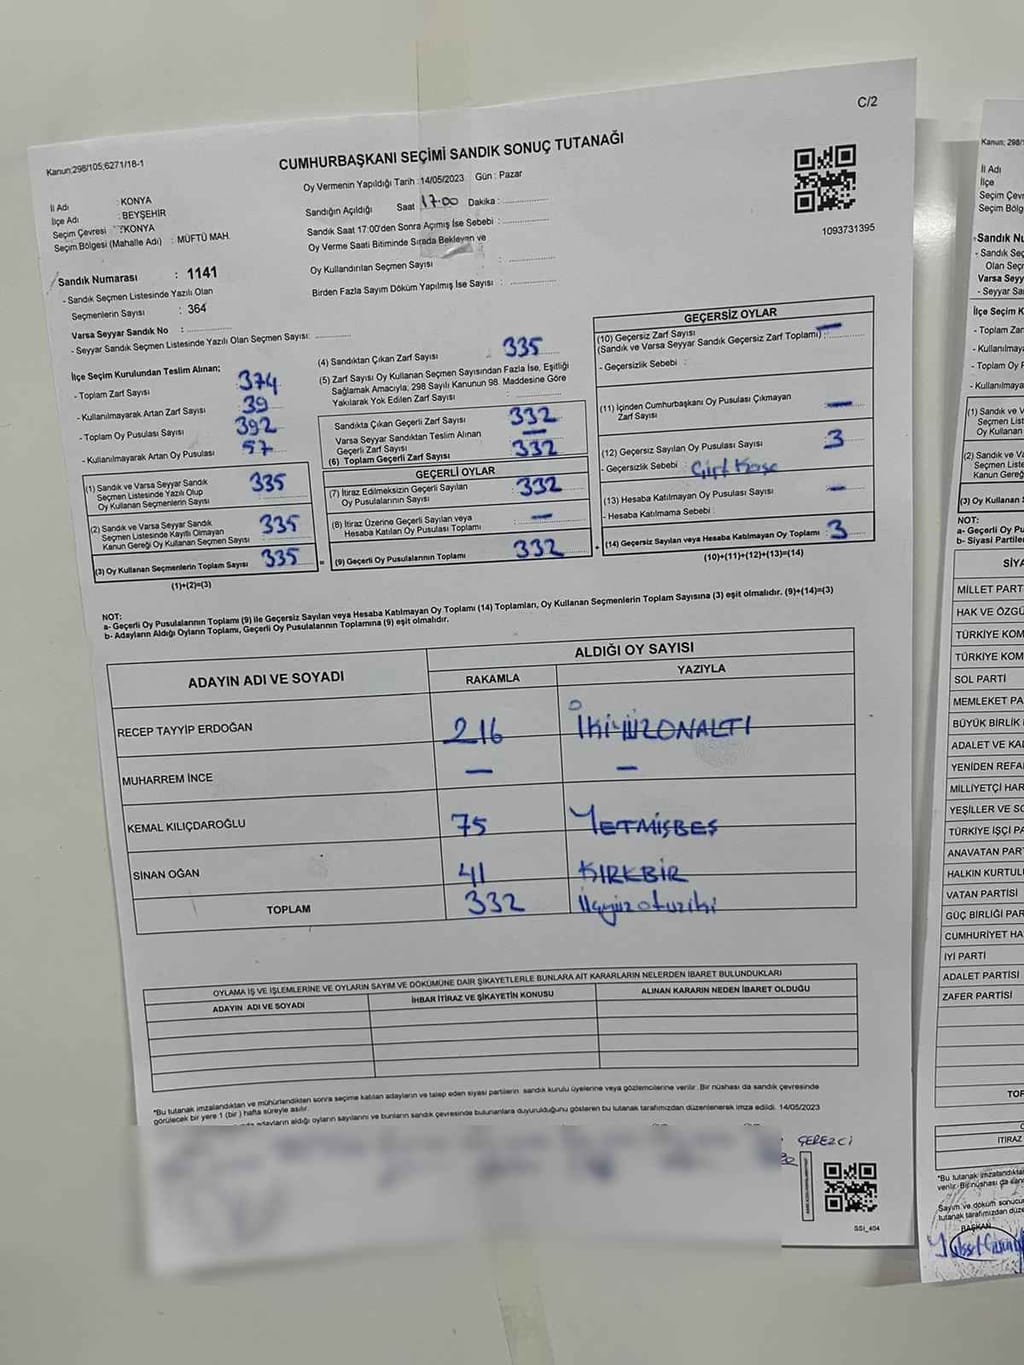 C/2
Kanun;298/105;6271/18-1
CUMHURBAŞKANI SEÇİMİ SANDIK SONUÇ TUTANAĞI
Oy Vermenin Yapıldığı Tarih : 14/05/2023 Gün : Pazar
İl Adı : KONYA
İlçe Adı : BEYŞEHİR
Seçim Çevresi : KONYA
Seçim Bölgesi (Mahalle Adı) : MÜFTÜ MAH.
Sandığın Açıldığı Saat 17:00 Dakika :
Sandık Saat 17:00'den Sonra Açımış İse Sebebi :
Oy Verme Saati Bitiminde Sırada Bekleyen ve
Oy Kullandırılan Seçmen Sayısı :
Birden Fazla Sayım Döküm Yapılmış İse Sayısı :
1093731395
Sandık Numarası : 1141
- Sandık Seçmen Listesinde Yazılı Olan
Seçmenlerin Sayısı : 364
Varsa Seyyar Sandık No :
- Seyyar Sandık Seçmen Listesinde Yazılı Olan Seçmen Sayısı:
İlçe Seçim Kurulundan Teslim Alınan;
- Toplam Zarf Sayısı : 374
- Kullanılmayarak Artan Zarf Sayısı : 39
- Toplam Oy Pusulası Sayısı : 392
- Kullanılmayarak Artan Oy Pusulası : 57
(1) Sandık ve Varsa Seyyar Sandık
Seçmen Listesinde Yazılı Olup
Oy Kullanan Seçmenlerin Sayısı : 335
(2) Sandık ve Varsa Seyyar Sandık
Seçmen Listesinde Kayıtlı Olmayan
Kanun Gereği Oy Kullanan Seçmen Sayısı : 335
(3) Oy Kullanan Seçmenlerin Toplam Sayısı : 335
(1)+(2)=(3)
(4) Sandıktan Çıkan Zarf Sayısı : 335
(5) Zarf Sayısı Oy Kullanan Seçmen Sayısından Fazla İse, Eşitliği
Sağlamak Amacıyla; 298 Sayılı Kanunun 98. Maddesine Göre
Yakılarak Yok Edilen Zarf Sayısı :
Sandıkta Çıkan Geçerli Zarf Sayısı : 332
Varsa Seyyar Sandıktan Teslim Alınan
Geçerli Zarf Sayısı : —
(6) Toplam Geçerli Zarf Sayısı : 332
GEÇERLİ OYLAR
(7) İtiraz Edilmeksizin Geçerli Sayılan
Oy Pusulalarının Sayısı : 332
(8) İtiraz Üzerine Geçerli Sayılan veya
Hesaba Katılan Oy Pusulası Toplamı : —
= (9) Geçerli Oy Pusulalarının Toplamı : 332
GEÇERSİZ OYLAR
(10) Geçersiz Zarf Sayısı
(Sandık ve Varsa Seyyar Sandık Geçersiz Zarf Toplamı) : —
- Geçersizlik Sebebi :
(11) İçinden Cumhurbaşkanı Oy Pusulası Çıkmayan
Zarf Sayısı : —
(12) Geçersiz Sayılan Oy Pusulası Sayısı : 3
- Geçersizlik Sebebi :
(13) Hesaba Katılmayan Oy Pusulası Sayısı : —
- Hesaba Katılmama Sebebi :
+ (14) Geçersiz Sayılan veya Hesaba Katılmayan Oy Toplamı : 3
(10)+(11)+(12)+(13)=(14)
NOT:
a- Geçerli Oy Pusulalarının Toplamı (9) ile Geçersiz Sayılan veya Hesaba Katılmayan Oy Toplamı (14) Toplamları, Oy Kullanan Seçmenlerin Toplam Sayısına (3) eşit olmalıdır. (9)+(14)=(3)
b- Adayların Aldığı Oyların Toplamı, Geçerli Oy Pusulalarının Toplamına (9) eşit olmalıdır.
ADAYIN ADI VE SOYADI
ALDIĞI OY SAYISI
RAKAMLA YAZIYLA
RECEP TAYYİP ERDOĞAN 216 İKİYÜZONALTI
MUHARREM İNCE — —
KEMAL KILIÇDAROĞLU 75 YETMİŞBEŞ
SİNAN OĞAN 41 KIRKBİR
TOPLAM 332 üçyüzotuziki
OYLAMA İŞ VE İŞLEMLERİNE VE OYLARIN SAYIM VE DÖKÜMÜNE DAİR ŞİKAYETLERLE BUNLARA AİT KARARLARIN NELERDEN İBARET BULUNDUKLARI
ADAYIN ADI VE SOYADI İHBAR İTİRAZ VE ŞİKAYETİN KONUSU ALINAN KARARIN NEDEN İBARET OLDUĞU
*Bu tutanak imzalandıktan ve mühürlendikten sonra seçime katılan adayların ve talep eden siyasi partilerin sandık kurulu üyelerine veya gözlemcilerine verilir. Bir nüshası da sandık çevresinde
görülecek bir yere 1 (bir) hafta süreyle asılır.
adayların aldığı oyların sayılarını ve bunların sandık çevresinde bulunanlara duyurulduğunu gösteren bu tutanak tarafımızdan düzenlenerek imza edildi. 14/05/2023
ÇEREZCİ
SSI_404
Kanun; 298/
İl Adı
İlçe
Seçim Çevr
Seçim Bölg
Sandık Nu
- Sandık Seç
Olan Seçr
Varsa Seyy
- Seyyar Sa
İlçe Seçim K
- Toplam Zar
- Kullanılmaya
- Toplam Oy P
- Kullanılmaya
(1) Sandık ve
Seçmen List
Oy Kullanan
(2) Sandık ve Va
Seçmen Liste
Kanun Gereğ
(3) Oy Kullanan S
NOT:
a- Geçerli Oy Pu
b- Siyasi Partiler
SİYA
MİLLET PART
HAK VE ÖZGÜ
TÜRKİYE KOM
TÜRKİYE KOM
SOL PARTİ
MEMLEKET PA
BÜYÜK BİRLİK
ADALET VE KAL
YENİDEN REFA
MİLLİYETÇİ HAR
YEŞİLLER VE SO
TÜRKİYE İŞÇİ PA
ANAVATAN PAR
HALKIN KURTULU
VATAN PARTİSİ
GÜÇ BİRLİĞİ PAR
CUMHURİYET HA
İYİ PARTİ
ADALET PARTİSİ
ZAFER PARTİSİ
TOP
İTİRAZ
*Bu tutanak imzalandıkta
verilir. Bir nüshası da san
Sayım ve döküm sonucu
tutanak tarafımızdan düze
BAŞKAN